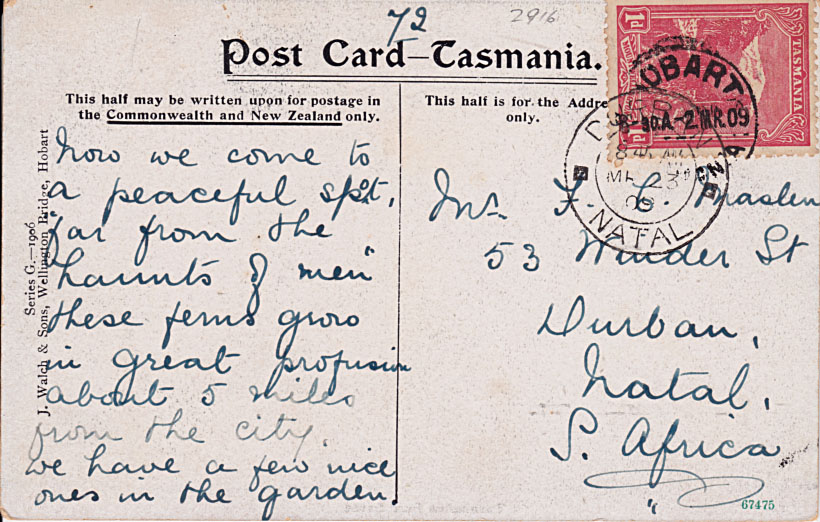 72
2916
Post Card–Tasmania.
This half may be written upon for postage in
the Commonwealth and New Zealand only.
This half is for the Addre
only.
1d
1d
TASMANIA
HOBART
8-30A-2MR.09
MR 23
09
NATAL
Series G.—1906
J. Walch & Sons, Wellington Bridge, Hobart
Now we come to
a peaceful spot,
far from the
"haunts of men"
these ferns grow
in great profusion
about 5 miles
from the city.
we have a few nice
ones in the garden.
Mr. F. C. Maslen
53 Winder St
Durban,
Natal,
S. Africa
67475